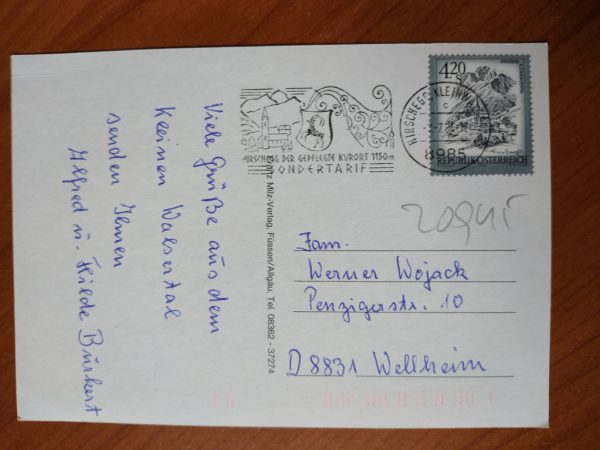 Viele Grüße aus dem
Kleinen Walsertal
senden Ihnen
Alfred u. Hilde Burkert
HIRSCHEGG DER GEPFLEGTE KURORT 1150m
SONDERTARIF
HIRSCHEGG-KLEINW
c
8985
4.20
S
REPUBLIK ÖSTERREICH
Franz Milz-Verlag, Füssen/Allgäu, Tel. 08362 - 37274
Fam.
Werner Wojack
Penzigerstr. 10
D 8831 Wellheim